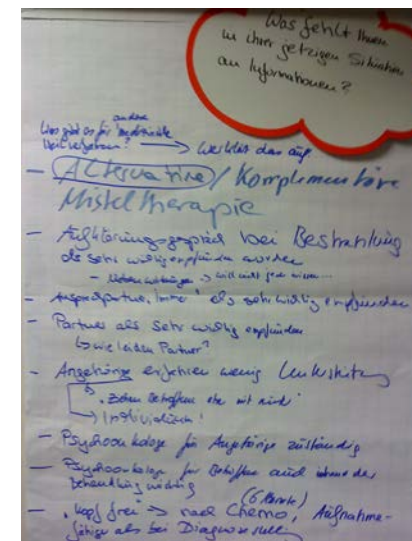 Was fehlt Ihnen
in Ihrer jetzigen Situation
an Informationen?
andere
Was gibt es für
Heilverfahren? → Wer klärt das auf
- Alternative / Komplementäre
Misteltherapie
- Aufklärungsgespräch bei Bestrahlung
als sehr wichtig empfunden worden
- → will nicht jeder wissen...
- Ansprechpartner als sehr wichtig empfunden
- Partner als sehr wichtig empfunden
↳ wie leiden Partner?
- Angehörige erfahren wenig Unterstützung
→ Individuum!
- Psychoonkologe für Angehörige zuständig
- Psychoonkologe für Betroffene auch während der
Behandlung wichtig
- "Kopf frei" → nach Chemo, (6 Monate) Aufnahme-
fähiger als bei Diagnosestellung